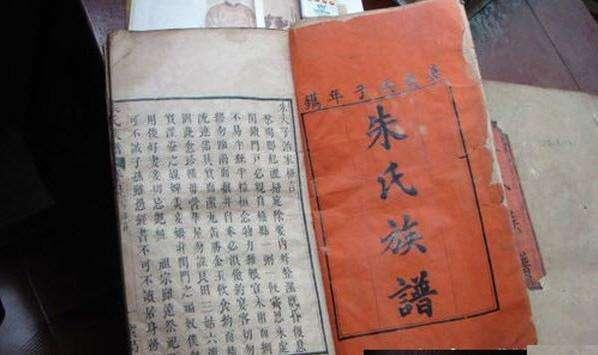 子年鐫
朱氏族譜
朱夫子治家格言
庭除要內外整潔既昏便息
關鎖門戶必親自檢點一粥一飯當思來處
不易半絲半縷恆念物力維艱宜未雨而綢
繆勿臨渴而掘井自奉必須儉約宴客切勿
流連器具質而潔瓦缶勝金玉飲食約而精
園蔬愈珍饈勿營華屋勿謀良田三姑六婆
實淫盜之媒婢美妾嬌非閨門之福奴僕勿
用俊好妻妾切忌艷粧祖宗雖遠祭祀
可不誠子孫雖愚經書不可不讀居身務